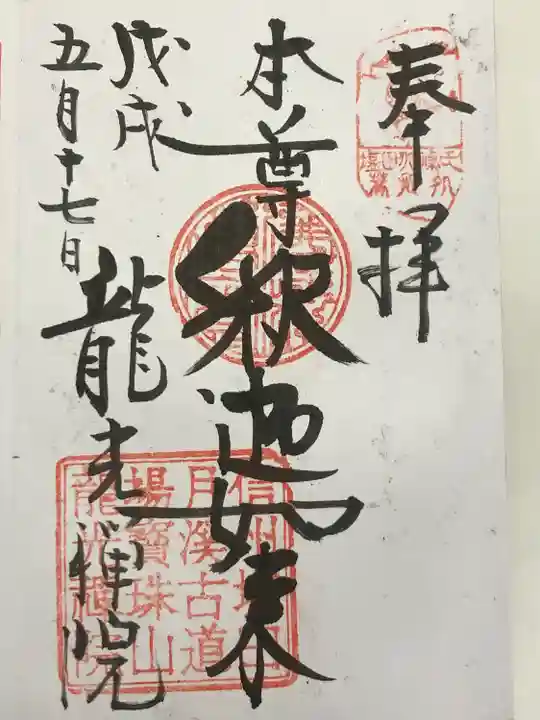 奉拝
本尊釈迦如来
戊戌
五月十七日
龍光禅院
信州塩田
月溪古道
場寳珠山
龍光禪院